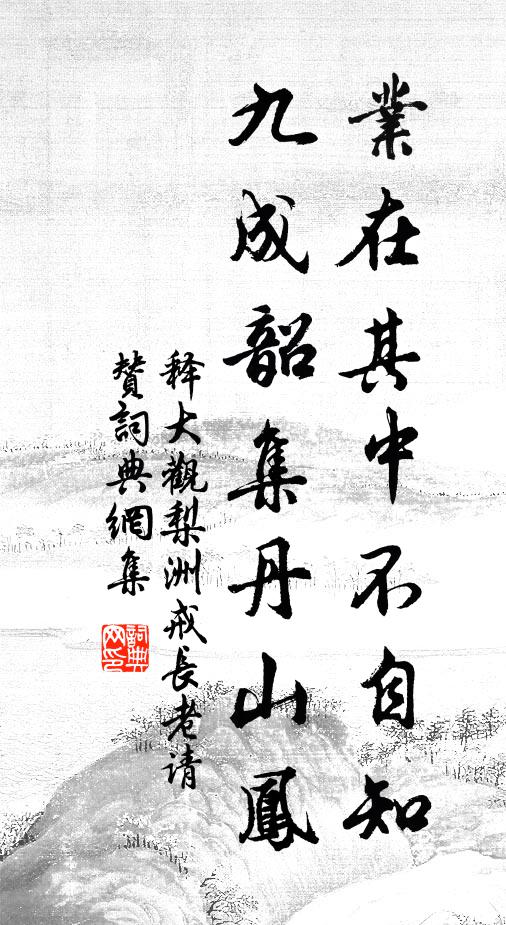 業在其中不自知
九成韶集丹山鳳
释大觀梨洲戒長老请
賛詞典網集
詞典
网印